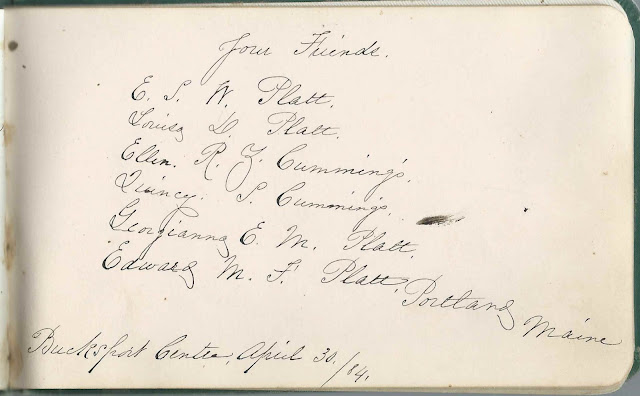 Your Friends.
E. S. W. Platt.
Louisa D. Platt.
Ellen. R. Z. Cummings.
Quincy. S. Cummings.
Georgianna E. M. Platt.
Edward M. F. Platt. Portland Maine
Bucksport Center, April 30, /84.